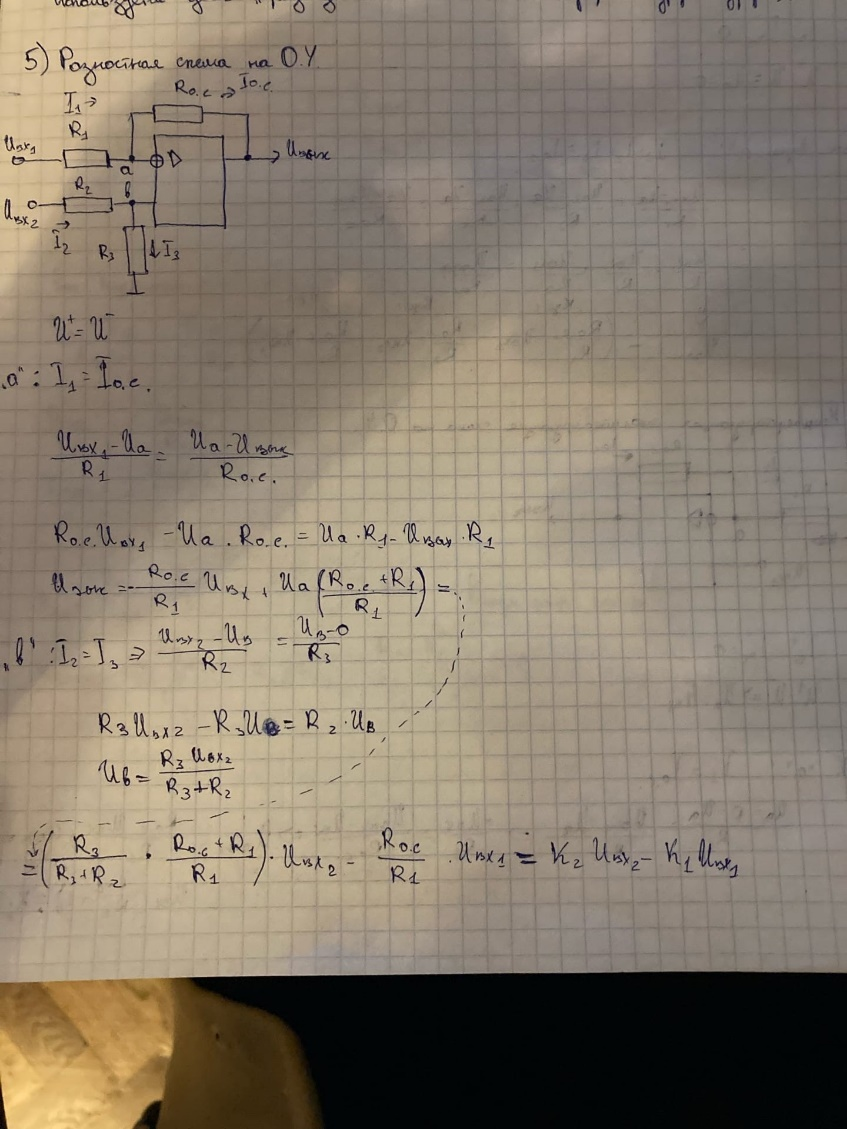 5) Разностная схема на О.У
Rо.с → Iо.с.
I₁→
R₁
Uвх₁
a
▷
Uвых
R₂
в
Uвх₂
→
I₂
R₃ ↓I₃
U⁺= U⁻
„а": I₁ = Iо.с.
(Uвх₁ - Uа)/R₁ = (Uа - Uвых)/Rо.с.
Rо.с. Uвх₁ - Uа . Rо.с. = Uа · R₁ - Uвых · R₁
Uвых = - Rо.с/R₁ Uвх + Uа ((Rо.с. + R₁)/R₁) =
„в" : I₂ = I₃ ⇒ (Uвх₂ - Uв)/R₂ = (Uв - 0)/R₃
R₃ Uвх₂ - R₃ Uв = R₂ · Uв
Uв = (R₃ Uвх₂)/(R₃ + R₂)
= (R₃/(R₃ + R₂) · (Rо.с + R₁)/R₁) · Uвх₂ - Rо.с/R₁ · Uвх₁ = K₂ Uвх₂ - K₁ Uвх₁